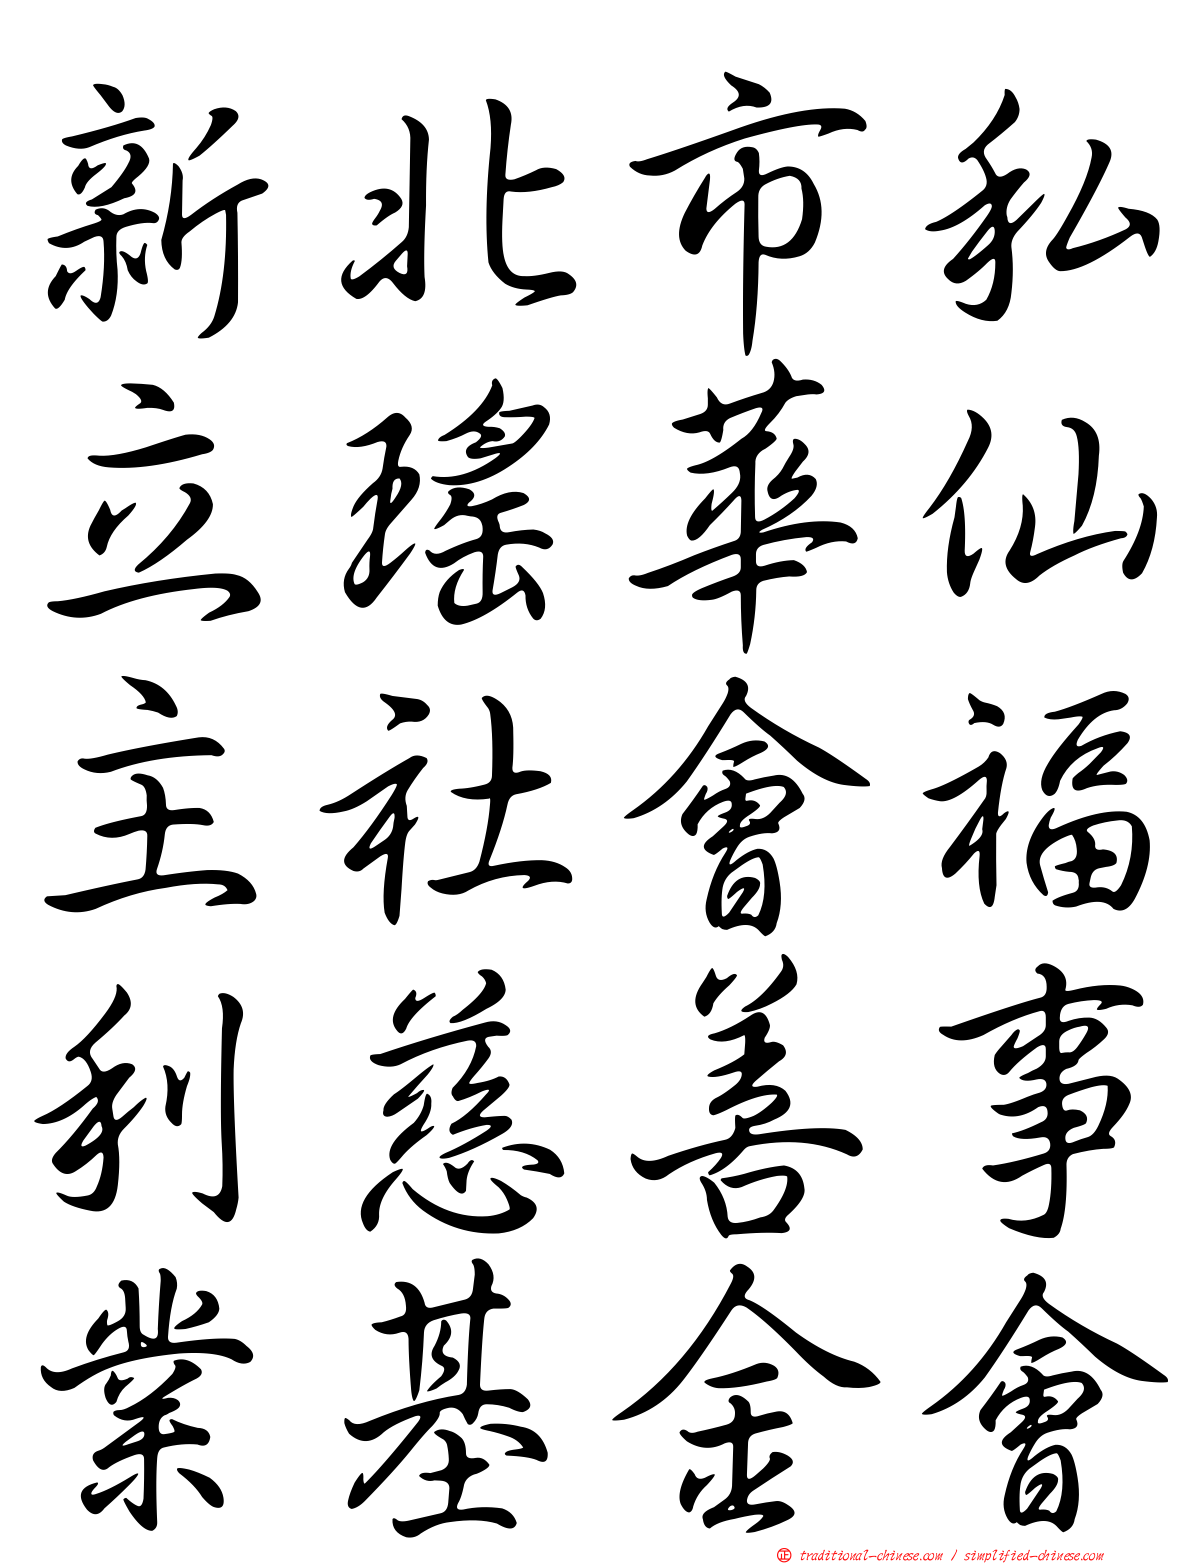 新北市私
立瑤華仙
主社會福
利慈善事
業基金會
正 traditional-chinese.com / simplified-chinese.com